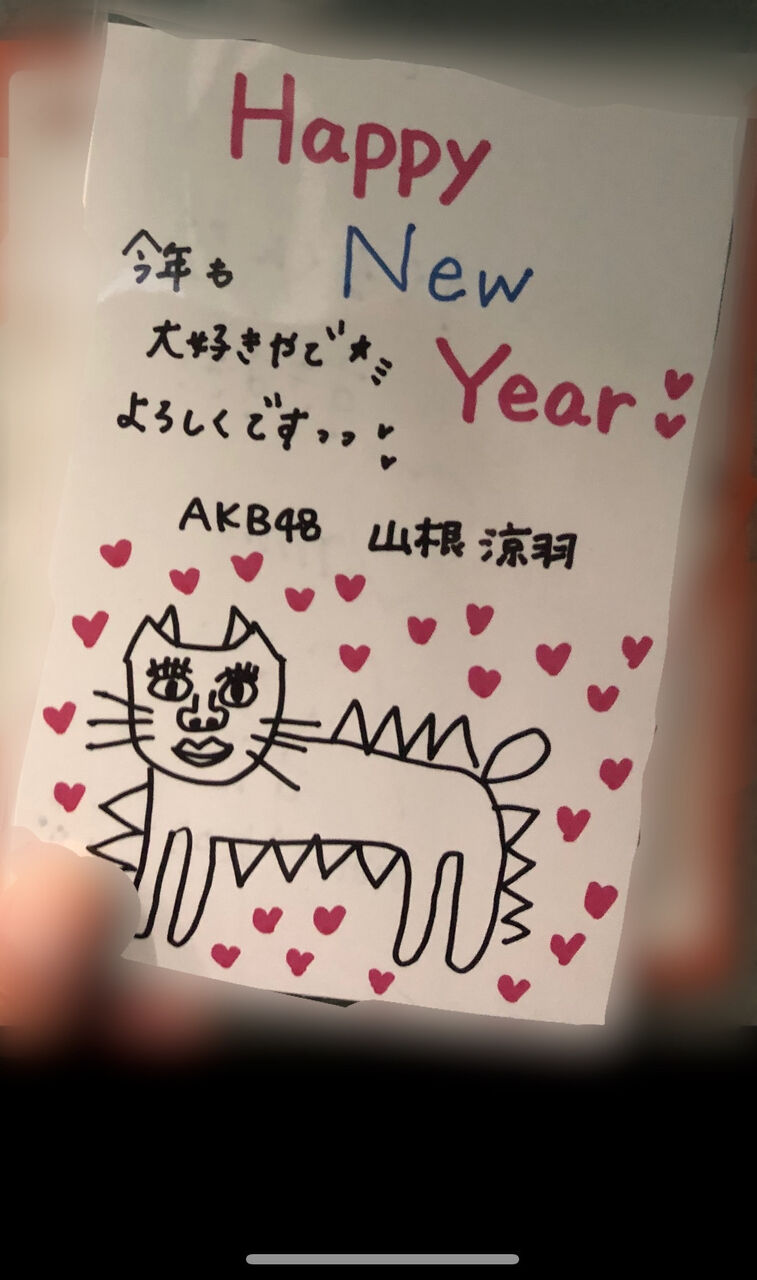 Happy
New
Year
今年も
大好きやで★
よろしくですっっ
AKB48 山根 涼羽